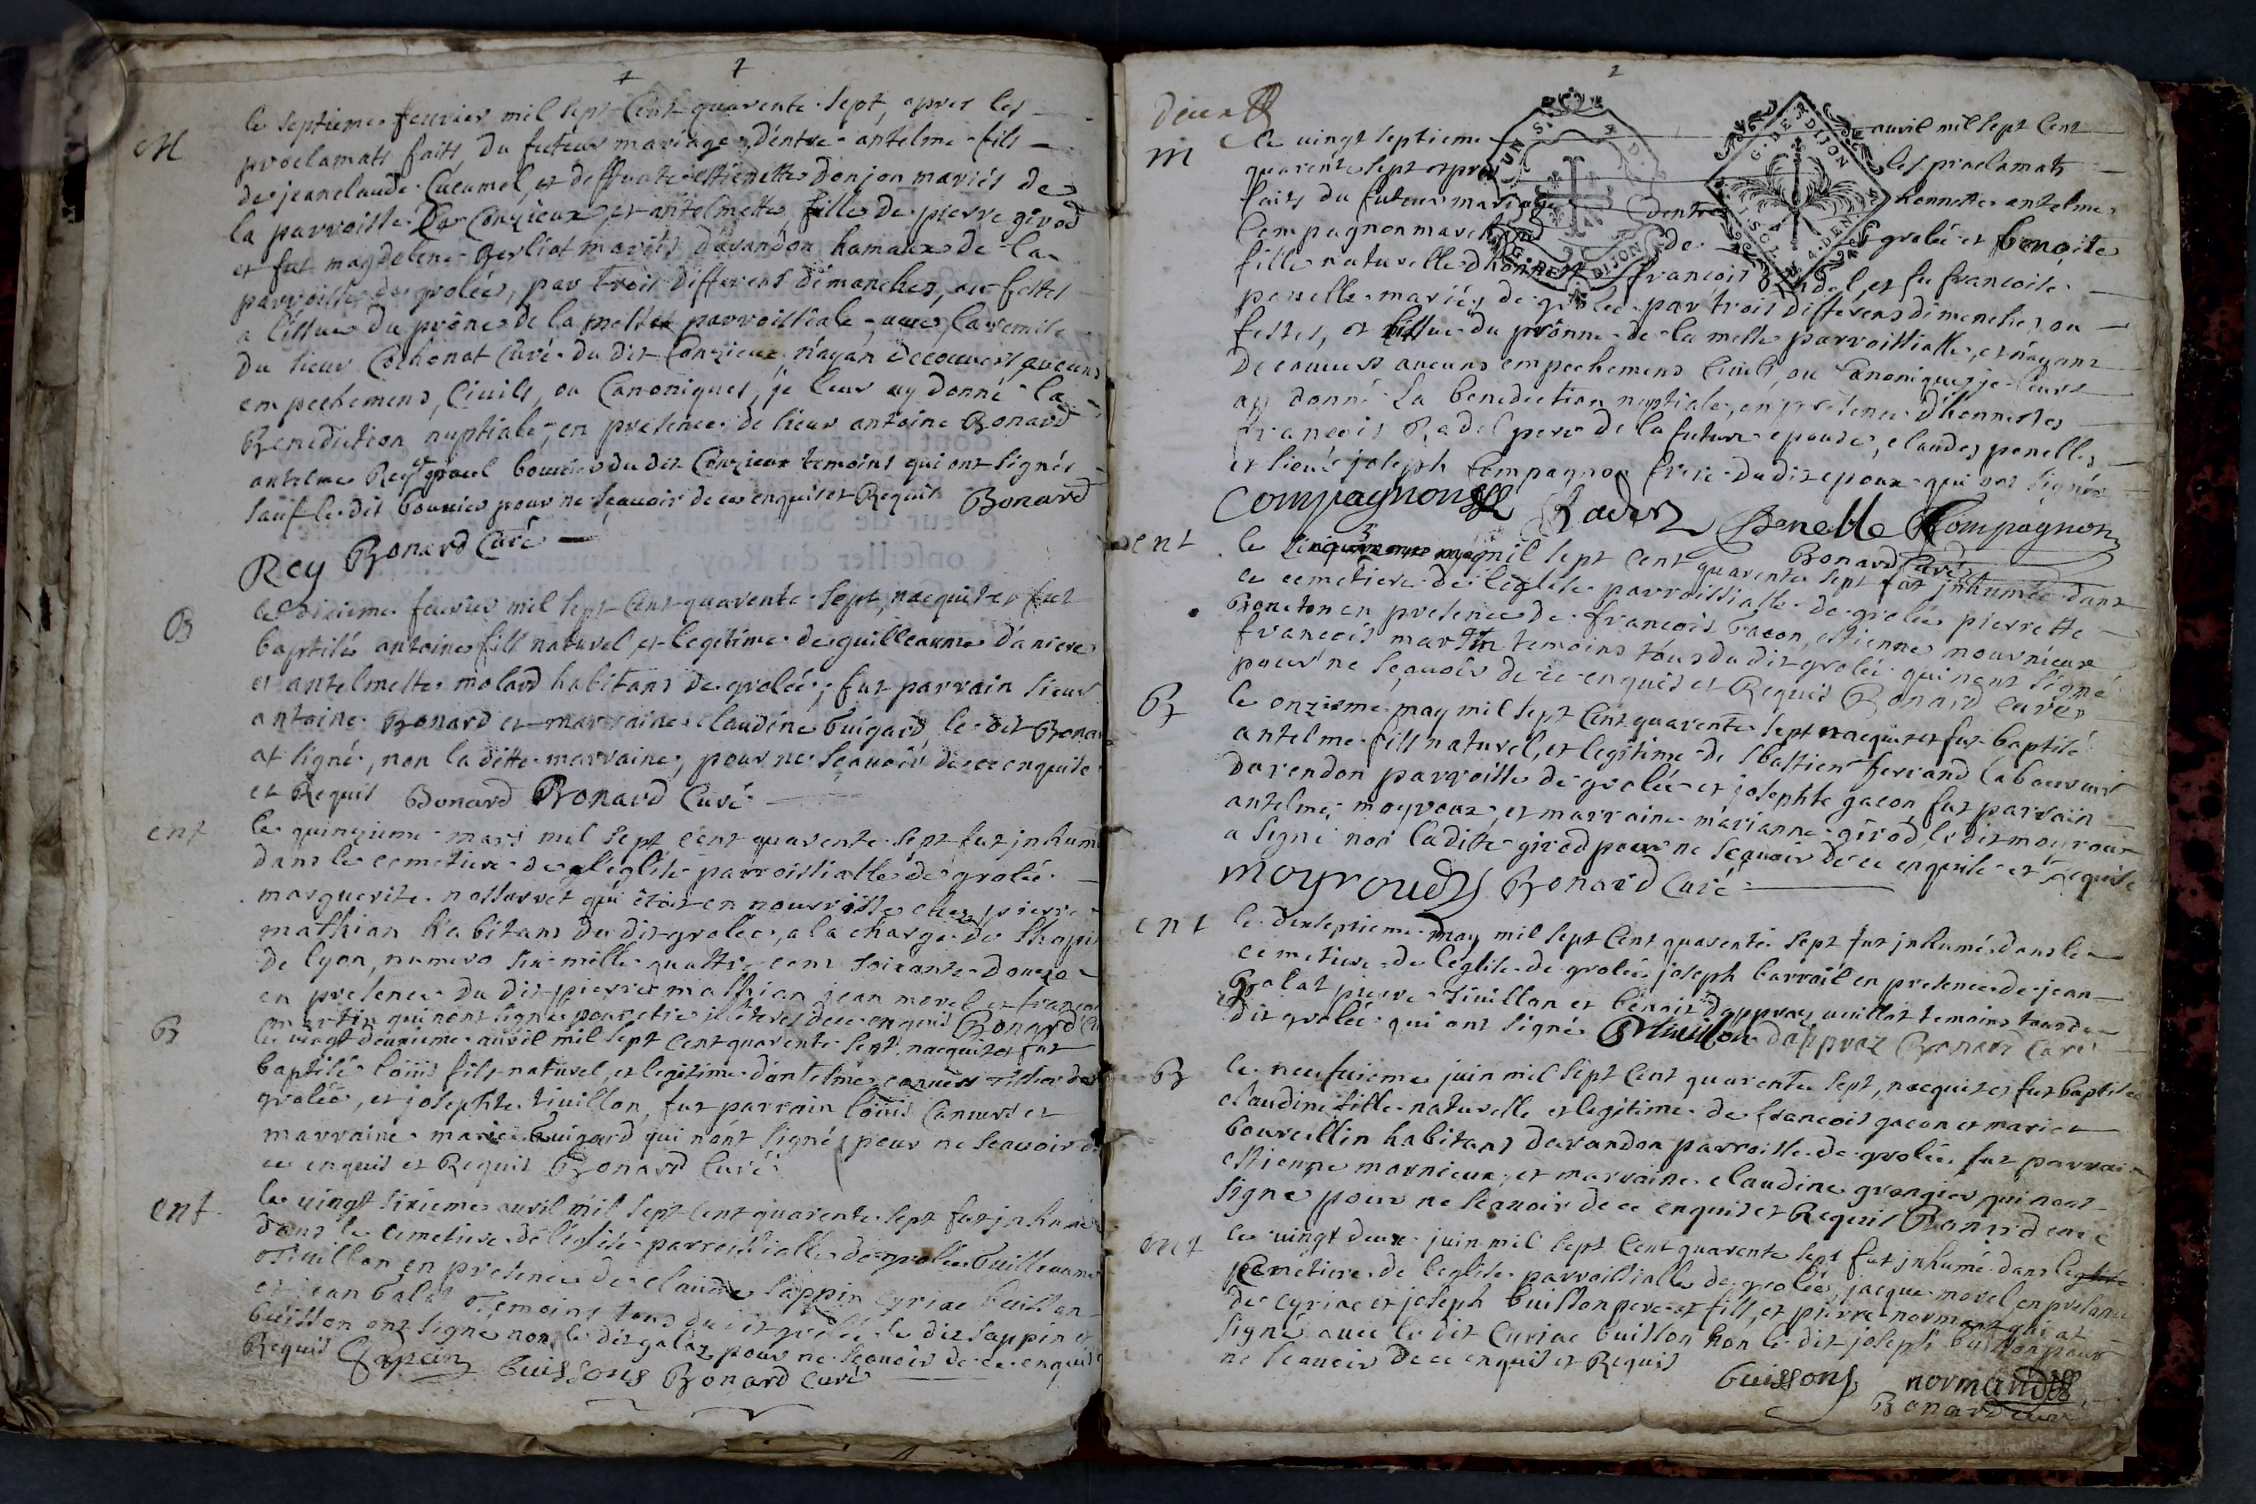 M
le septieme feuvier mil sept Cent quarente sept, apres les
proclamats faits du futeur mariage d'entre antelme fils
de jeanclaude Cucumel, et deffunte estienette donjon mariés de
la parroisse De Conzieux, et antelmette fille de pierre girod
et fut magdelene Berliot mariés d'avandon hamaux de la
parroisse de grolée, par trois differens dimanches, ou festes
a l'issue du prône de la messe parroissiale, avec la remise
du sieur Cochonat Curé du dit Conzieux n'ayan decouvert aucuns
empechemens, Civils, ou Canoniques, je leur ay donné la
Benediction nuptiale, en presence de sieur antoine Bonard
antelme Rey et bouvier du dit Conzieux temoins qui ont signés
sauf le dit bouvier pour ne sçauoir de ce enquis et Requis Bonard
Rey Bonard Curé
B
le dixieme feuvier mil sept Cent quarente sept, nacquit et fut
baptisé antoine fils naturel, et legitime de guilleaume daniere
et antelmette molard habitans de grolée; fut parrain sieur
antoine Bonard et marraine claudine buigard, le dit Bonar
at signé, non la ditte marraine, pour ne sçauoir de ce enquise
et Requis Bonard Bonard Curé
ent
le quinzieme mars mil sept cent quarente sept fut jnhum
dans le cemetiere de l'eglise parroissialle de grolée
marguerite nassurret qui étoit en nourrisse chez pierre
mathian habitans du dit grolée, a la charge de lhopit
de lyon, numero six mille quattre cent soixante douze
en presence du dit pierre mathian jean morel et françois
martin qui nont signés pour etre jlleteres de ce enquis Bonard C
B
le vingt deuxieme auril mil sept Cent quarente sept nacquit et fut
baptisé loüis fils naturel, et legitime d'antelme
grolée, et josephte tiuillon, fut parrain loüis Canners et
marraine marie buigard qui n'ont signés pour ne sçauoir d
ce enquis et Requis Bonard Curé
ent
le vingt sixieme auril mil sept Cent quarente sept fut jnhumé
dans le cimetiere de l'eglise parroissialle de grolée Guilleaume
Tiuillon en presence de claude Sappin Cyriac buisson
et jean balat Temoins tous du dit grolée le dit Sappin et
buisson ont signé non le dit galaz pour ne sçauoir de ce enquis
Requis Sapein buissons Bonard curé
2
deux
m
le vingt septieme auril mil sept Cent
quarente sept et pres les proclamats
faits du futeur mariage dentre honnette antelme
Compagnon marchand de grolée et benoite
fille naturelle dhonnette francois Radel, et fu francoise
penelle mariés de grolée par trois differens dimenches, ou
festes, et lissue du prônne de la messe parroissialle, et n'ayant
decouuert aucuns empechemens Civils, ou Canoniques je leurs
ay donné la benediction nuptiale, en presence dhonnettes
francois Radel pere de la future epouse, claudes penelles
et sieur joseph Compagnon frere du dit epoux qui ont signés
Compagnon Rader penelle Compagnon
Bonard Curé
ent
le may mil sept Cent quarente sept fut jnhumée dans
le cemetiere de l'eglise parroissialle de grolée pierrette
Boneton en presence de francois Gacon, estienne mournieux
francois martin temoins tous du dit grolée qui nont signé
pour ne sçauoir de ce enquis et Requis Bonard Curé
B
le onzieme may mil sept Cent quarente sept nacquit et fut baptisé
antelme fils naturel, et legitime de sbastien ferrand laboureur
davendon parroisse de grolée et josephte gacon fut parrain
antelme moyroux, et marraine marianne girod, le dit mouroux
a signé non la ditte girod pour ne sçauoir de ce enquise et Requise
Moyroud Bonard Curé
ent
le dixseptieme may mil sept Cent quarente sept fut jnhumé dans le
cemetiere de l'eglise de grolée joseph barrail en presence de jean
Galat pierre tiuillon et benoit dapproz temoins tous du
dit grolée qui ont signés tiuillon dapproz Bonard Curé
B
le neufuieme juin mil sept Cent quarente sept, nacquit et fut baptisée
claudine fille naturelle et legitime de francois gacon et marie
bouveillin habitans davandon parroisse de grolée fut parrain
estienne mornieux, et marraine claudine grangier qui nont
signé pour ne sçauoir de ce enquis et Requis Bonard curé
ent
le vingt deux juin mil sept Cent quarente sept fut jnhumé dans l
Cemetiere de l'eglise parroissialle de grolée, jacque morel, en presence
de Cyriac et joseph buisson pere et fils, et pierre normant qui at
signé auec le dit Curiac buisson non le dit joseph buisson pour
ne sçauoir de ce enquis et Requis
buissons normand
Bonard curé
G. DE DIJON